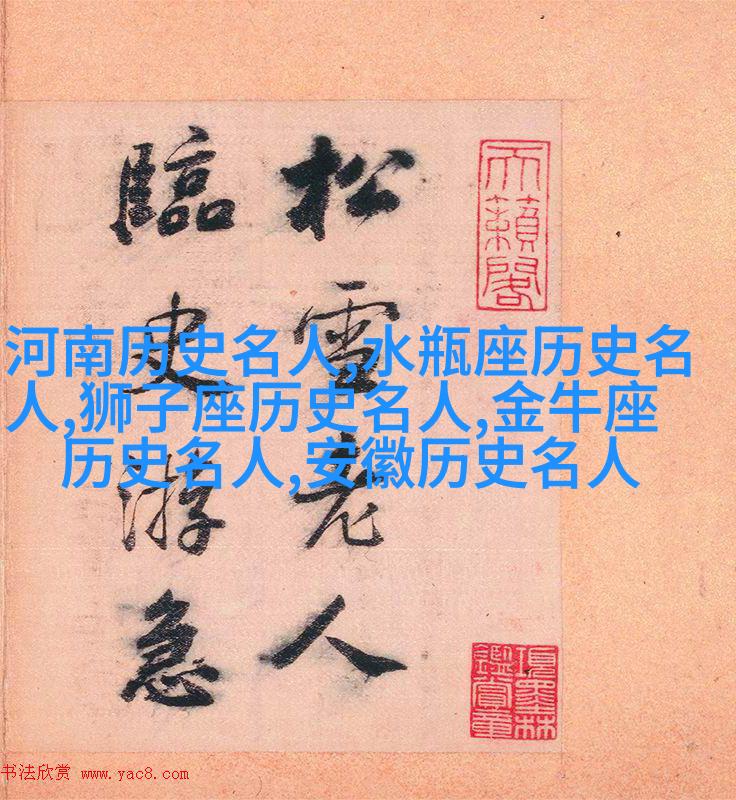 天籟閣
松雪老人
臨史游急
河南历史名人,水瓶座历史名
人,狮子座历史名人,金牛座
历史名人,安徽历史名人
項墨林
鑑賞章
书法欣赏 www.yac8.com